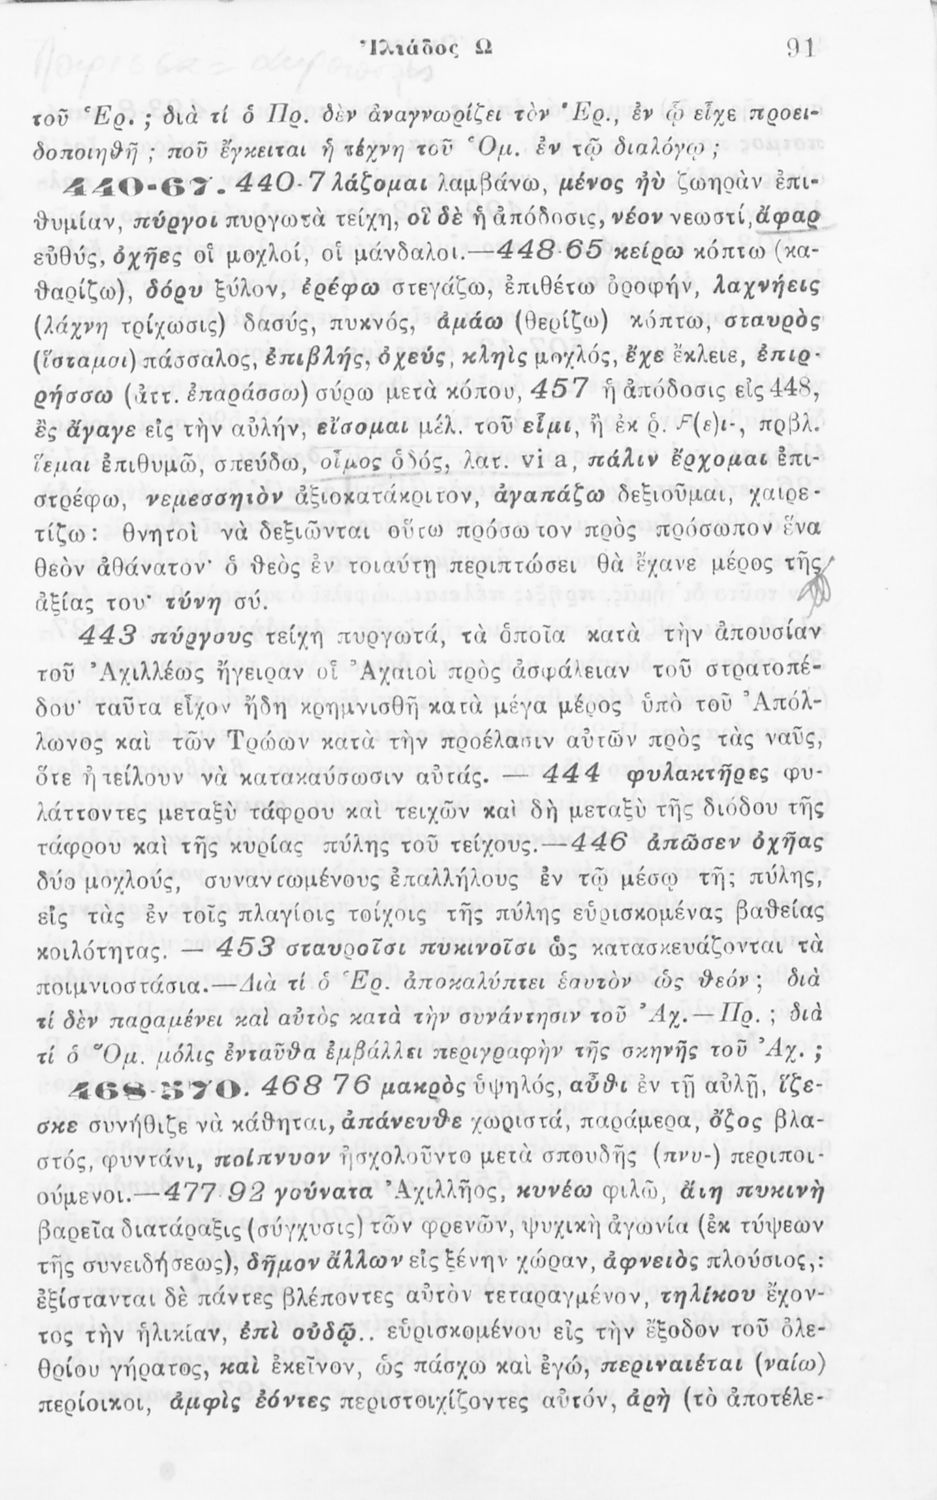 Ἰλιάδος Ω 91
τοῦ Ἑρ. ; διὰ τί ὁ Πρ. δὲν ἀναγνωρίζει τὸν Ἑρ., ἐν ᾧ εἶχε προει-
δοποιηθῆ ; ποῦ ἔγκειται ἡ τέχνη τοῦ Ὁμ. ἐν τῷ διαλόγῳ ;
440-67. 440-7 λάζομαι λαμβάνω, μένος ἠὺ ζωηρὰν ἐπι-
θυμίαν, πύργοι πυργωτὰ τείχη, οἳ δὲ ἡ ἀπόδοσις, νέον νεωστί, ἄφαρ
εὐθύς, ὀχῆες οἱ μοχλοί, οἱ μάνδαλοι.—448-65 κείρω κόπτω (κα-
θαρίζω), δόρυ ξύλον, ἐρέφω στεγάζω, ἐπιθέτω ὀροφήν, λαχνήεις
(λάχνη τρίχωσις) δασύς, πυκνός, ἀμάω (θερίζω) κόπτω, σταυρὸς
(ἵσταμαι) πάσσαλος, ἐπιβλής, ὀχεύς, κληὶς μοχλός, ἔχε ἔκλειε, ἐπιρ-
ρήσσω (ἀττ. ἐπαράσσω) σύρω μετὰ κόπου, 457 ἡ ἀπόδοσις εἰς 448,
ἒς ἄγαγε εἰς τὴν αὐλήν, εἴσομαι μέλ. τοῦ εἶμι, ἢ ἐκ ῥ. F(ε)ι-, πρβλ.
ἵεμαι ἐπιθυμῶ, σπεύδω, οἶμος ὁδός, λατ. via, πάλιν ἔρχομαι ἐπι-
στρέφω, νεμεσσητὸν ἀξιοκατάκριτον, ἀγαπάζω δεξιοῦμαι, χαιρε-
τίζω : θνητοὶ νὰ δεξιῶνται οὕτω πρόσωπον πρὸς πρόσωπον ἕνα
θεὸν ἀθάνατον· ὁ θεὸς ἐν τοιαύτῃ περιπτώσει θὰ ἔχανε μέρος τῆς
ἀξίας του· τύνη σύ.
443 πύργους τείχη πυργωτά, τὰ ὁποῖα κατὰ τὴν ἀπουσίαν
τοῦ Ἀχιλλέως ἤγειραν οἱ Ἀχαιοὶ πρὸς ἀσφάλειαν τοῦ στρατοπέ-
δου· ταῦτα εἶχον ἤδη κρημνισθῆ κατὰ μέγα μέρος ὑπὸ τοῦ Ἀπόλ-
λωνος καὶ τῶν Τρώων κατὰ τὴν προέλασιν αὐτῶν πρὸς τὰς ναῦς,
ὅτε ἠπείλουν νὰ κατακαύσωσιν αὐτάς. — 444 φυλακτῆρες φυ-
λάττοντες μεταξὺ τάφρου καὶ τειχῶν καὶ δὴ μεταξὺ τῆς διόδου τῆς
τάφρου καὶ τῆς κυρίας πύλης τοῦ τείχους.—446 ἀπῶσεν ὀχῆας
δύο μοχλούς, συναντωμένους ἐπαλλήλους ἐν τῷ μέσῳ τῆς πύλης,
εἰς τὰς ἐν τοῖς πλαγίοις τοίχοις τῆς πύλης εὑρισκομένας βαθείας
κοιλότητας. — 453 σταυροῖσι πυκινοῖσι ὡς κατασκευάζονται τὰ
ποιμνιοστάσια.—Διὰ τί ὁ Ἑρ. ἀποκαλύπτει ἑαυτὸν ὡς θεόν ; διὰ
τί δὲν παραμένει καὶ αὐτὸς κατὰ τὴν συνάντησιν τοῦ Ἀχ.—Πρ. ; διὰ
τί ὁ Ὅμ. μόλις ἐνταῦθα ἐμβάλλει περιγραφὴν τῆς σκηνῆς τοῦ Ἀχ. ;
468-570. 468 76 μακρὸς ὑψηλός, αὖθι ἐν τῇ αὐλῇ, ἵζε-
σκε συνήθιζε νὰ κάθηται, ἀπάνευθε χωριστά, παράμερα, ὄζος βλα-
στός, φυντάνι, ποίπνυον ἠσχολοῦντο μετὰ σπουδῆς (πνυ-) περιποι-
ούμενοι.—477 92 γούνατα Ἀχιλλῆος, κυνέω φιλῶ, ἄιη πυκινὴ
βαρεῖα διατάραξις (σύγχυσις) τῶν φρενῶν, ψυχικὴ ἀγωνία (ἐκ τύψεων
τῆς συνειδήσεως), δῆμον ἄλλων εἰς ξένην χώραν, ἀφνειὸς πλούσιος,:
ἐξίστανται δὲ πάντες βλέποντες αὐτὸν τεταραγμένον, τηλίκου ἔχον-
τος τὴν ἡλικίαν, ἐπὶ οὐδῷ.. εὑρισκομένου εἰς τὴν ἔξοδον τοῦ ὀλε-
θρίου γήρατος, καὶ ἐκεῖνον, ὡς πάσχω καὶ ἐγώ, περιναιέται (ναίω)
περίοικοι, ἀμφὶς ἐόντες περιστοιχίζοντες αὐτόν, ἀρὴ (τὸ ἀποτέλε-